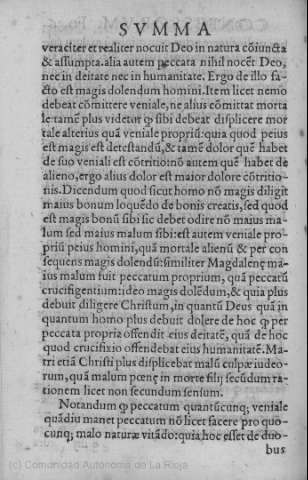 SVMMA
veraciter et realiter nocuit Deo in natura cõiuncta
& assumpta. alia autem peccata nihil nocēt Deo,
nec in deitate nec in humanitate. Ergo de illo fa-
cto est magis dolendum homini. Item licet nemo
debeat cõmittere veniale, ne alius cõmittat morta
le: tamē plus videtur ꝙ sibi debeat displicere mor
tale alterius quā veniale propriū: quia quod peius
est magis est detestandū, & tamē dolor quē habet
de suo veniali est cõtritio: nõ autem quē habet de
alieno, ergo alius dolor est maior dolore cõtritio-
nis. Dicendum quod sicut homo nõ magis diligit
maius bonum loquēdo de bonis creatis, sed quod
est magis bonū sibi: sic debet odire nõ maius ma-
lum sed maius malum sibi: est autem veniale pro-
priū peius homini, quā mortale alienū & per con
sequens magis dolendū: similiter Magdalenę ma-
ius malum fuit peccatum proprium, quā peccatū
crucifigentium: ideo magis dolēdum, & quia plus
debuit diligere Christum, in quantū Deus quā in
quantum homo plus debuit dolere de hoc ꝙ per
peccata propria offendit eius deitatē, quā de hoc
quod crucifixio offendebat eius humanitatē. Ma-
tri etiā Christi plus displicebat malū culpæ iudeo-
rum, quā malum pœnę in morte filij secūdum ra-
tionem licet non secundum sensum.
Notandum ꝙ peccatum quantūcunq; veniale
quādiu manet peccatum nõ licet facere pro quo-
cunq; malo naturæ vitādo: quia hoc esset de duo-
bus
(c) Comunidad Autónoma de La Rioja